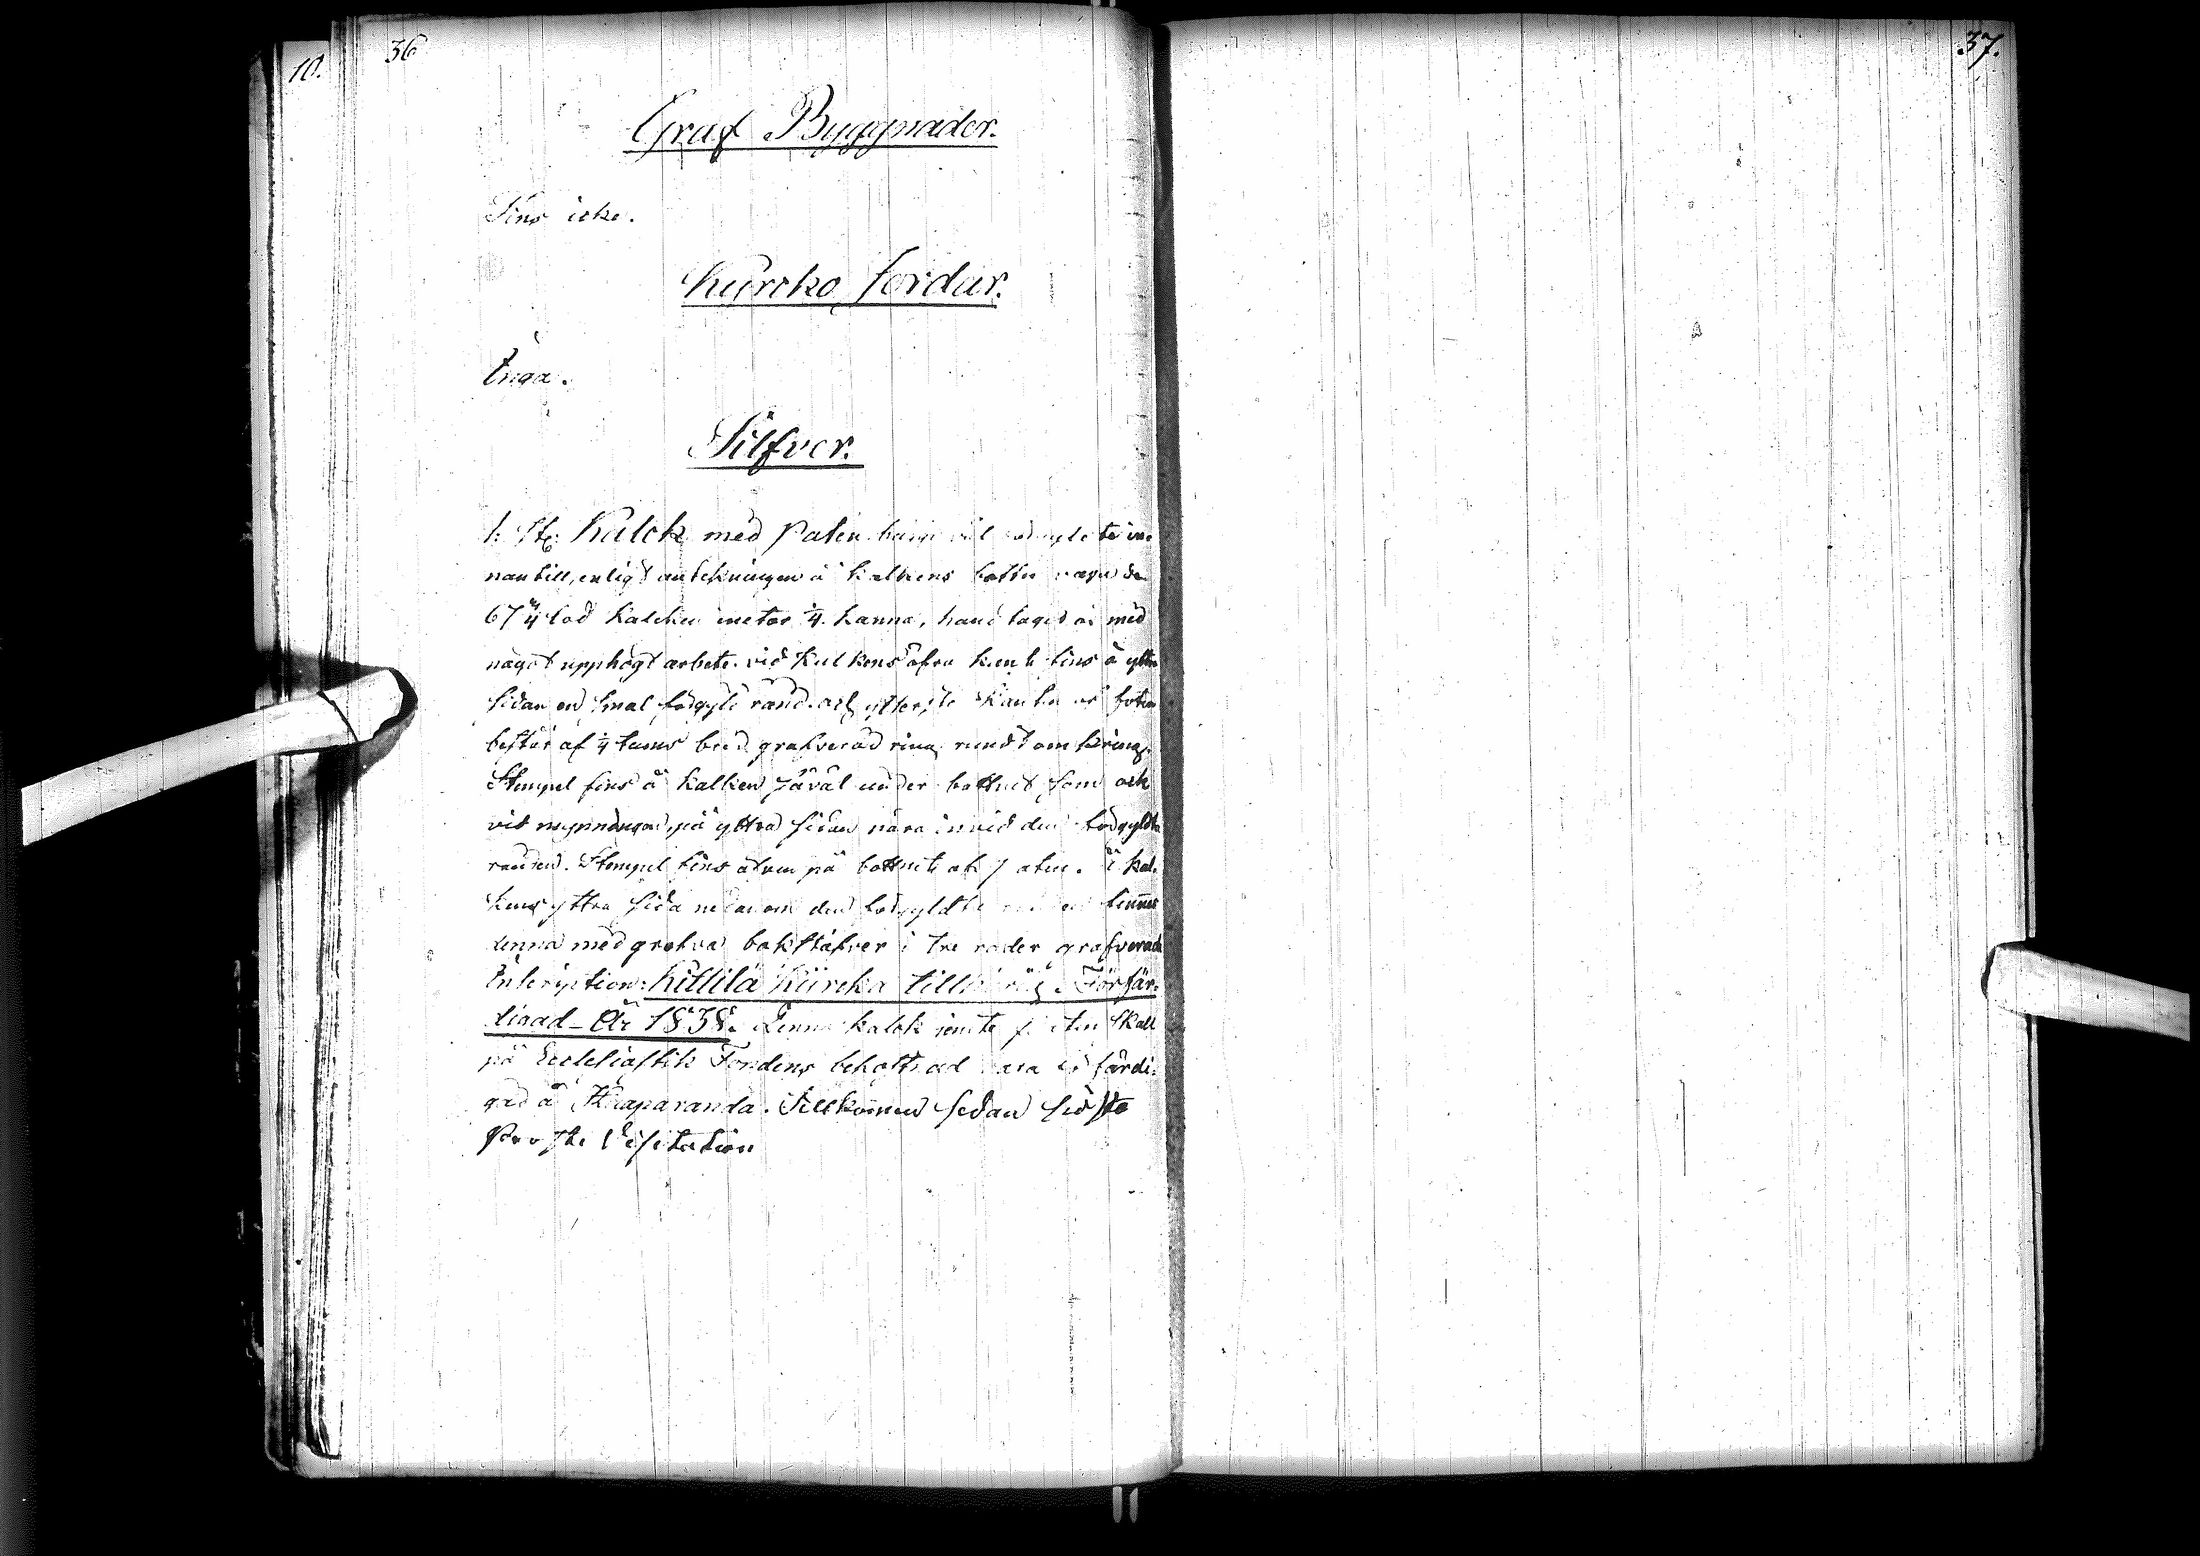 10.
36
37.
Graf Byggnader.
Fins icke.
Kürcko Jordar.
Inga.
Silfver.
1. St. Kalck med Paten te in-
nantill, enligt antekningen å Kalkens botten
67 3/4 lod Kalcken 1/4 kanna,
något upphögt arbete. vid Kalkens öfra kant fins å yttre
sidan en smal rand. och ytterste kanten af foten
består af 1/4 tums bred grafverad ring rundt om kring.
Stempel fins å kalken såväl under bottnet som ock
vid mynningen, på yttra sidan nära invid den
randen. Stempel fins äfven på bottnet af Paten. Å Kal-
kens yttra sida nedanom den finnes
denna med grofva bokstäfver i tre rader grafverade
Inscription: Kittilä Kürcka tillhörig. Förfär-
digad – År 1838. Denne kalck jemte paten skall
på Ecclesiastik Fondens bekostnad vara förfärdi-
gad å Haparanda. Tillkommen sedan sidste
Visitation